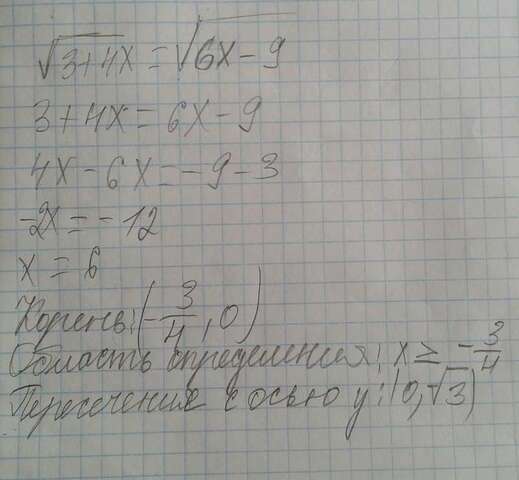 √3+4x = √6x-9
3+4x = 6x-9
4x-6x = -9-3
-2x = -12
x = 6
Корень: (-3/4, 0)
Область определения: x ≥ -3/4
Пересечение с осью y: (0, √3)